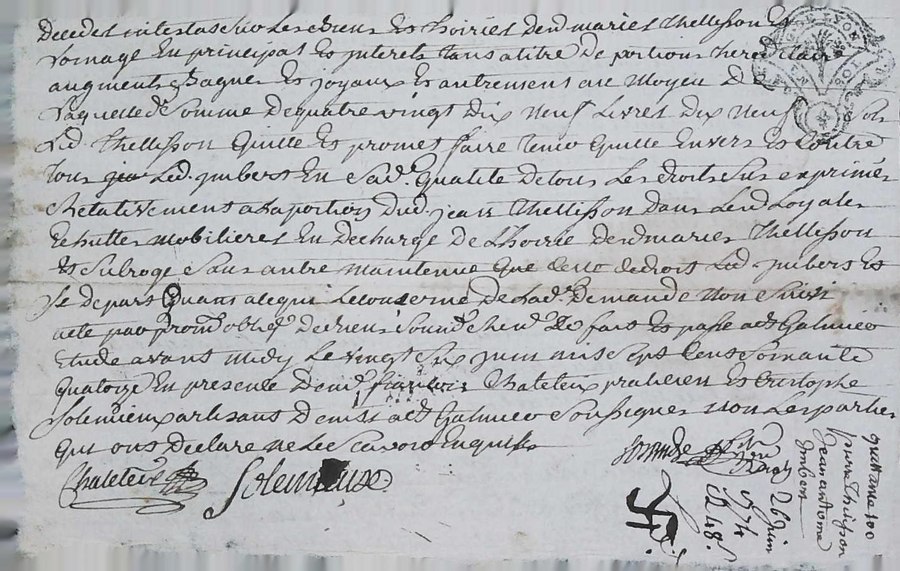 decedes intestas sur les biens et hoiries derd maries Thellisson et
Vornage En principal Es interets tans a titre De portion hereditaire
augment Bagues Es joyaux Es autrement au Moyen De
Laquelle de somme De quatre vingt Dix Neuf Livres Dix Neuf sols
Led. Thellisson quitte Es promet faire tenir quitte Envers Es Contre
Tous Led. jmbert En Sad. qualite De tous Les droits sus exprimés
Relativement a la portion dud. jean Thellisson Dans Lesd
mobilieres En Decharge De L'hoirie derd maries Thellisson
Es Subroge Sans autre maintenue que de droit Led. jmbert Es
Se depars quans a ce qui Le Concerne De Lad. Demande non Suivi
acte par prom. obl. fait Es passe a St Galmier
Etude avant midy Le vingt Six juin mil Sept Cens Soixante
quatorze En presence De m. francois Chateleix praticien Es Cristophe
Solemieux artisans De St Galmier Soussignes non Les parties
qui ons Declare ne Le Scavoir Enquis
Chateleix
Solemieux
26 juin
1774
48 s
quittance 100
pierre Thelisson
Jean antoine
Imbert